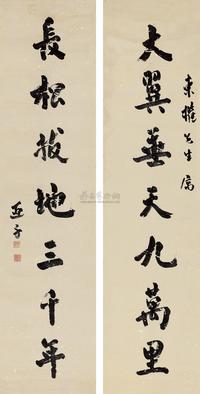 大翼垂天九萬里
東權先生屬
長松拔地三千年
亞子